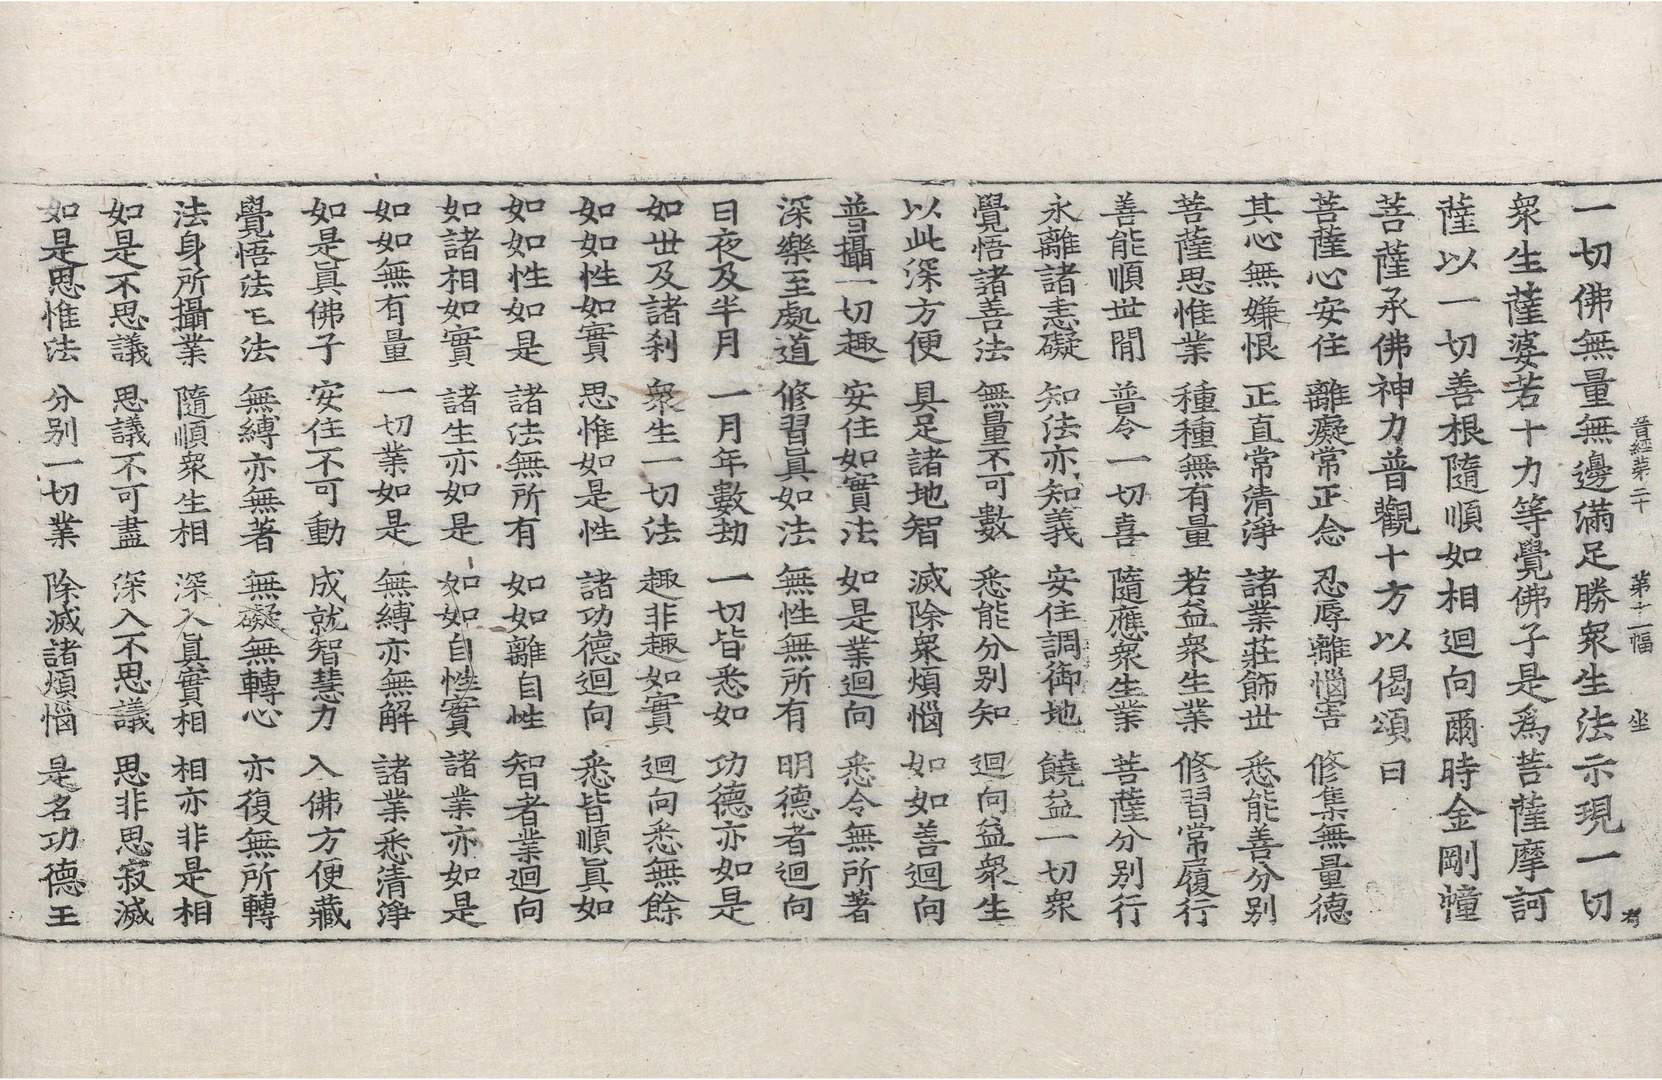 晉經第二十 第十二幅 坐
一切佛無量無邊滿足勝衆生法示現一切
衆生薩婆若十力等覺佛子是爲菩薩摩訶
薩以一切善根隨順如相迴向爾時金剛幢
菩薩承佛神力普觀十方以偈頌曰
菩薩心安住 離癡常正念 忍辱離惱害 修集無量德
其心無嫌恨 正直常清淨 諸業莊飾世 悉能善分別
菩薩思惟業 種種無有量 若益衆生業 修習常履行
善能順世閒 普令一切喜 隨應衆生業 菩薩分別行
永離諸恚礙 知法亦知義 安住調御地 饒益一切衆
覺悟諸善法 無量不可數 悉能分別知 迴向益衆生
以此深方便 具足諸地智 滅除衆煩惱 如如善迴向
普攝一切趣 安住如實法 如是業迴向 悉令無所著
深樂至處道 修習眞如法 無性無所有 明德者迴向
日夜及半月 一月年數劫 一切皆悉如 功德亦如是
如世及諸刹 衆生一切法 趣非趣如實 迴向悉無餘
如如性如實 思惟如是性 諸功德迴向 悉皆順眞如
如如性如是 諸法無所有 如如離自性 智者業迴向
如諸相如實 諸生亦如是 如如自性實 諸業亦如是
如如無有量 一切業如是 無縛亦無解 諸業悉清淨
如是眞佛子 安住不可動 成就智慧力 入佛方便藏
覺悟法王法 無縛亦無著 無礙無轉心 亦復無所轉
法身所攝業 隨順衆生相 深入眞實相 相亦非是相
如是不思議 思議不可盡 深入不思議 思非思寂滅
如是思惟法 分别一切業 除滅諸煩惱 是名功德王